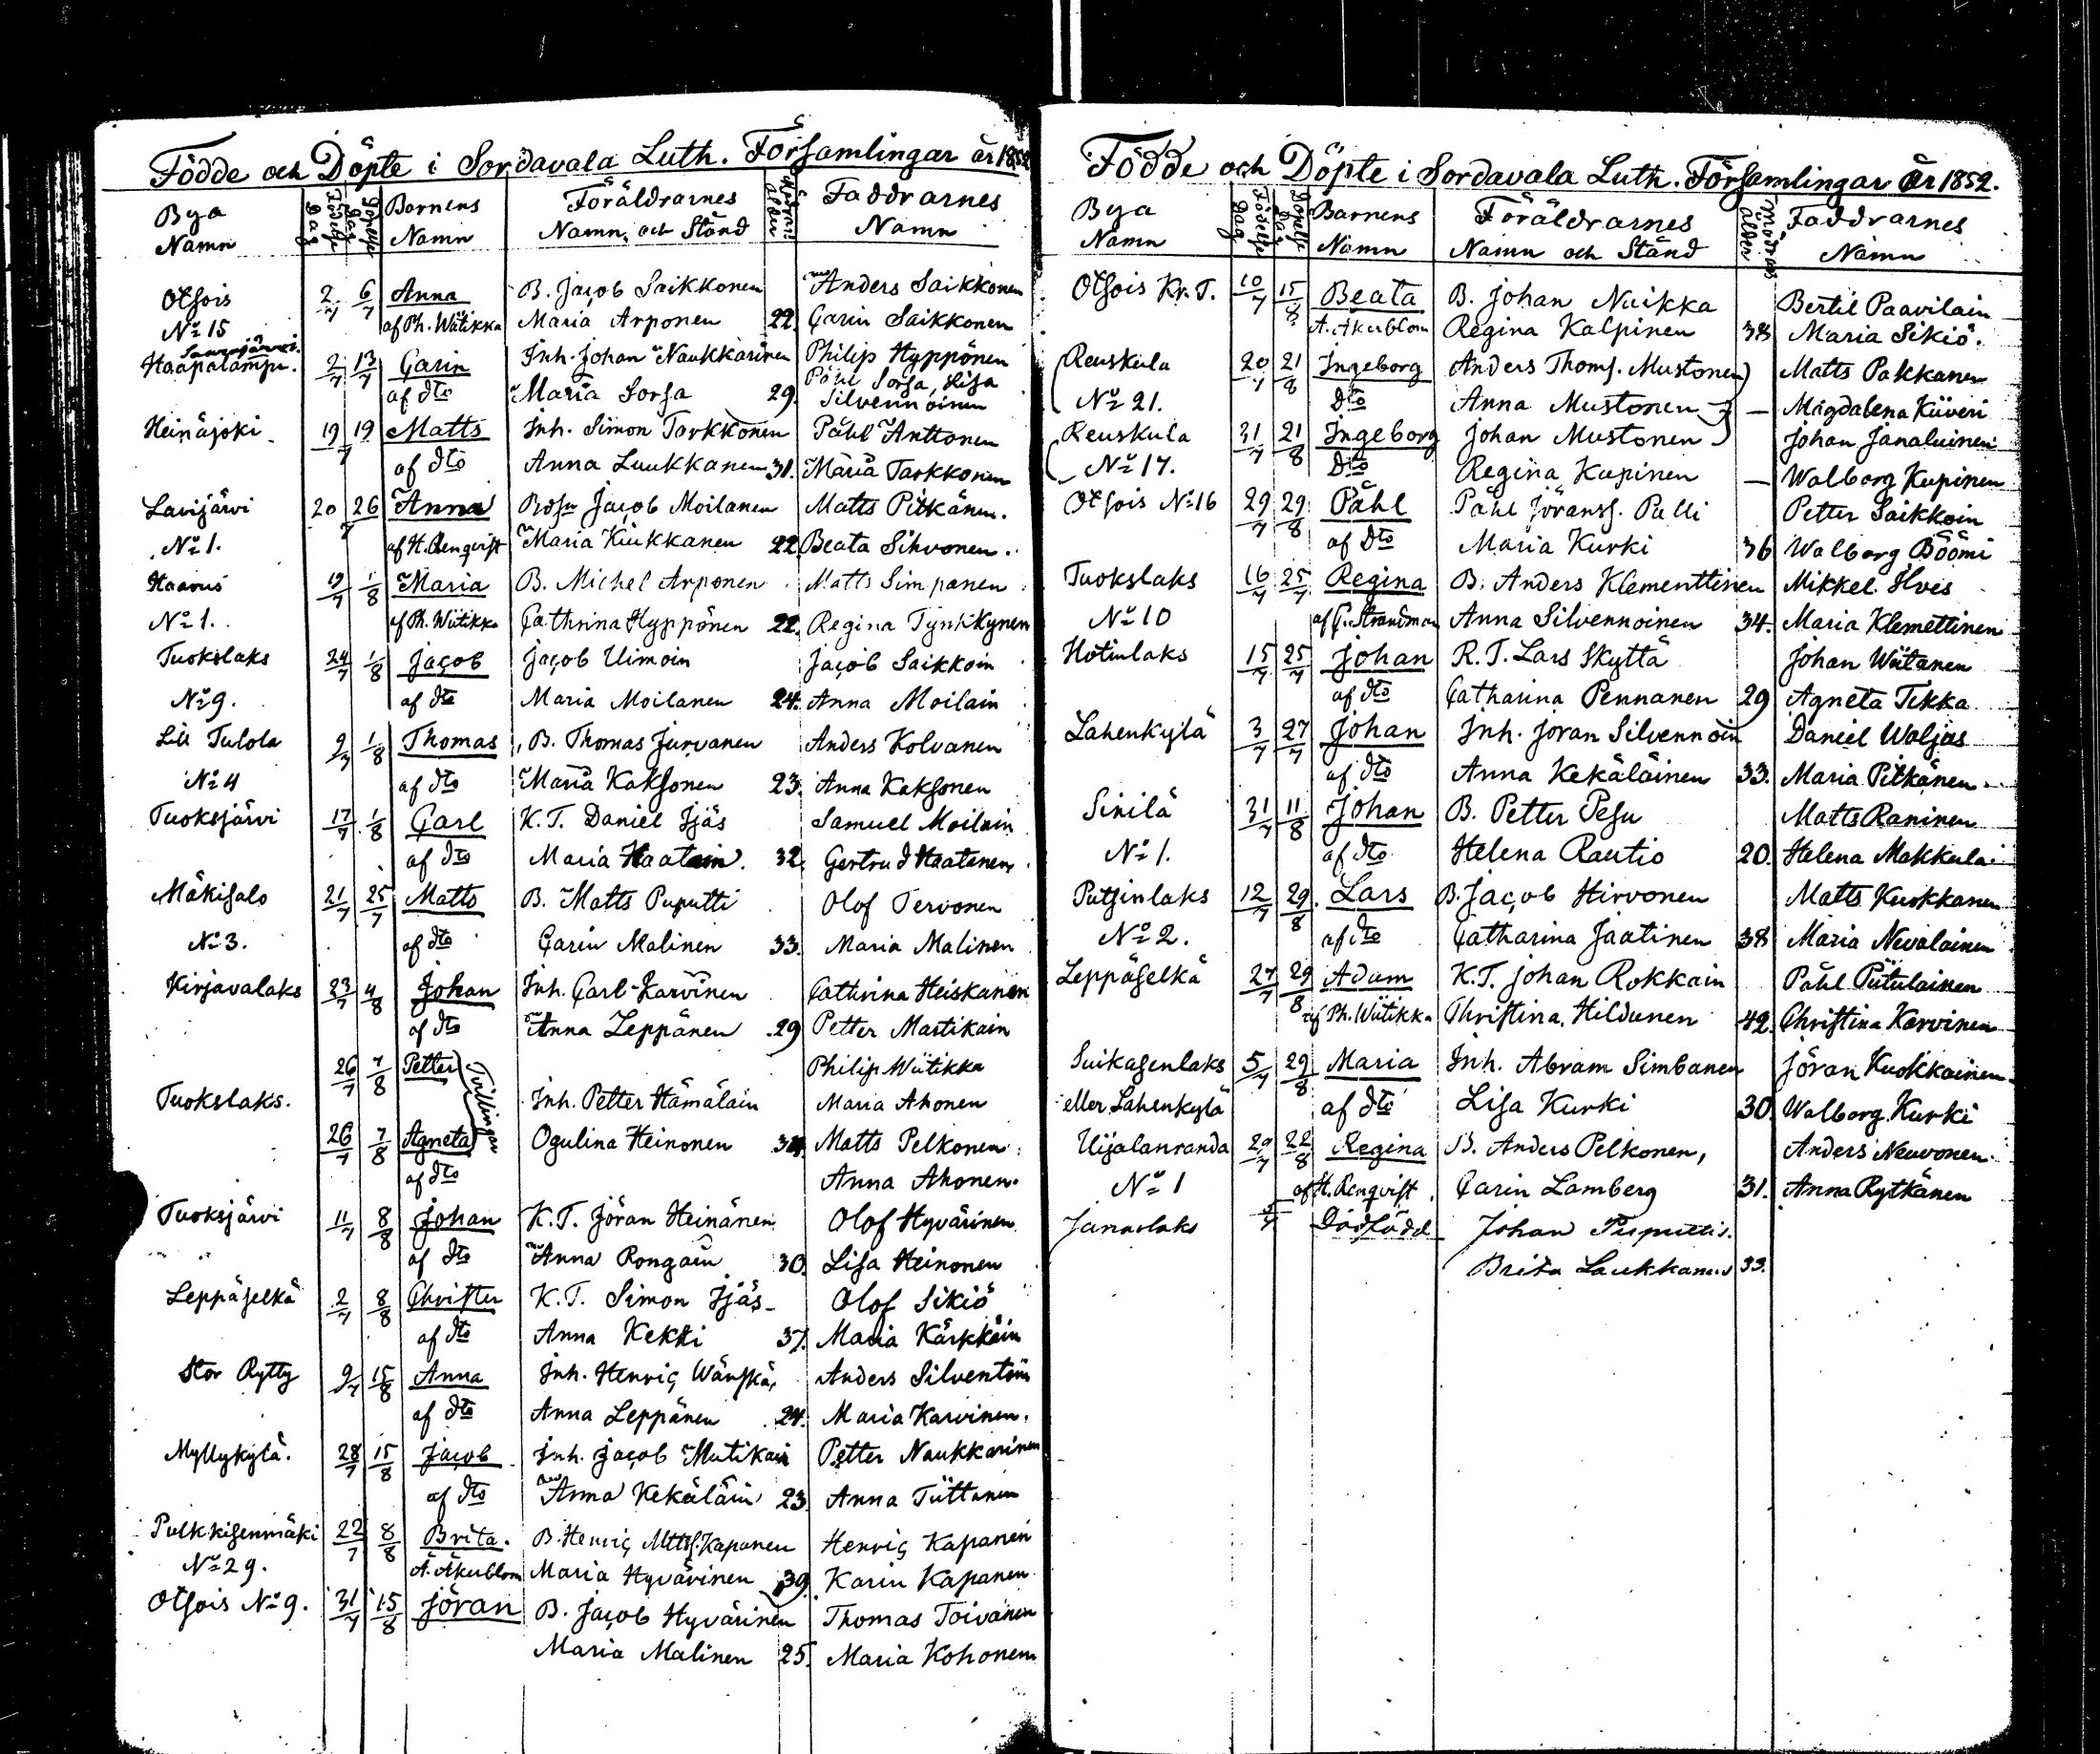 Födde och Döpte i Sordavala Luth. Församlingar år 1852
Bya Namn Födelse Dag Dopelse Dag Barnens Namn Föräldrarnes Namn, och Stånd Modrens Ålder Faddrarnes Namn
Otsois 2/7 6/7 Anna B. Jacob Saikkonen Anders Saikkonen
No 15 af Ph. Wiitikka Maria Arponen 22. Carin Saikkonen
Haapalampi. 2/7 13/7 Carin Inh. Johan Naukkarinen Philip Hyppönen
af dto Maria Sorsa 29. Påhl Sorsa, Lisa
Silvennoinen
Heinäjoki 19 19/7 Matts Inh. Simon Tarkkonen Påhl Anttonen
af dto Anna Luukkanen 31. Maria Tarkkonen
Lavijärvi 20 26/7 Anna Jacob Moilanen Matts Pitkänen.
No 1. af H. Renqvist Maria Kiukkanen 22. Beata Sihvonen.
Haavus 19/7 1/8 Maria B. Michel Arponen Matts Simpanen
No 1. af Ph. Wiitikka Cathrina Hyppönen 22. Regina Tynkkynen
Tuokslaks 24/7 1/8 Jacob Jacob Uimoin Jacob Saikkoin
No 9. af dto Maria Moilanen 24. Anna Moilain
Lill Tulola 9/7 1/8 Thomas B. Thomas Jurvanen Anders Kolvanen
No 4 af dto Maria Kaksonen 23. Anna Kaksonen
Tuoksjärvi 17/7 1/8 Carl K.T. Daniel Ijäs Samuel Moilain
af dto Maria Haatain. 32. Gertrud Haatanen
Mäkisalo 21/7 25/7 Matts B. Matts Puputti Olof Tervonen
No 3. af dto Carin Malinen 33. Maria Malinen
Kirjavalaks 23/7 4/8 Johan Inh. Carl Karvinen Cathrina Heiskanen
af dto Anna Leppänen 29 Petter Martikain
26/7 7/8 Petter Tvillingar Philip Wiitikka
Tuokslaks. Inh. Petter Hämäläin Maria Ahonen
26/7 7/8 Agneta Ogulina Heinonen 34 Matts Pelkonen
af dto Anna Ahonen.
Tuoksjärvi 11/7 8/8 Johan K.T. Jöran Heinänen Olof Hyvärinen
af dto Anna Rongain 30. Lisa Heinonen
Leppäselkä 2/7 8/8 Christer K.T. Simon Ijäs Olof Sikiö
af dto Anna Kekki 37. Maria Kärkkäin
Stor Rytty 9/7 15/8 Anna Inh. Henric Wänskä, Anders Silventoin
af dto Anna Leppänen 24. Maria Karvinen.
Myllykylä. 28/7 15/8 Jacob Inh. Jacob Mutikain Petter Naukkarinen
af dto Anna Kekäläin 23. Anna Tiittanen
Pulkkisenmäki 22/7 8/8 Brita. B. Henric Mttss. Kapanen Henric Kapanen
No 29. A. Åkerblom Maria Hyvärinen 39. Karin Kapanen
Otsois No 9. 31/7 15/8 Jöran B. Jacob Hyvärinen Thomas Toivanen
Maria Malinen 25. Maria Kohonen
Födde och Döpte i Sordavala Luth. Församlingar år 1852.
Bya Namn Födelse Dag Dopelse Dag Barnens Namn Föräldrarnes Namn och Stånd Modrens Ålder Faddrarnes Namn
Otsois Kr. T. 10/7 15/8 Beata B. Johan Nuikka Bertil Paavilain
A. Åkerblom Regina Kalpinen 38 Maria Sikiö.
Reuskula 20/7 21/8 Ingeborg Anders Thoms. Mustonen Matts Pakkanen
No 21. dto Anna Mustonen — Magdalena Kiiveri
Reuskula 31/7 21/8 Ingeborg Johan Mustonen Johan Janaluinen
No 17. dto Regina Kupinen — Walborg Kupinen
Otsois No 16 29/7 29/8 Påhl Påhl Jöranss. Pulli Petter Saikkoin
af dto Maria Kurki 36 Walborg Böömi
Tuokslaks 16/7 25/7 Regina B. Anders Klementtinen Mikkel Ilves
No 10 af C. Strandman Anna Silvennoinen 34. Maria Klemettinen
Hotinlaks 15/7 25/7 Johan R.T. Lars Skyttä Johan Wiitanen
af dto Catharina Pennanen 29 Agneta Tikka
Lahenkylä 3/7 27/7 Johan Inh. Jöran Silvennoin Daniel Waljus
af dto Anna Kekäläinen 33. Maria Pitkänen
Sirilä 31/7 11/8 Johan B. Petter Pesu Matts Raninen
No 1. af dto Helena Rautio 20. Helena Makkula
Putsinlaks 12/7 29/8 Lars B. Jacob Hirvonen Matts Kuokkanen
No 2. af dto Catharina Jaatinen 38 Maria Nevalainen
Leppäselkä 27/7 29/8 Adam K.T. Johan Rokkain Påhl Putulainen
af Ph. Wiitikka Christina Hildunen 42. Christina Karvinen
Suikasenlaks 5/7 29/8 Maria Inh. Abram Simbanen Jöran Kuokkainen
eller Lahenkylä af dto Lisa Kurki 30. Walborg Kurki
Uijalanranda 29/7 22/8 Regina B. Anders Pelkonen, Anders Neuvonen
No 1 af H. Renqvist. Carin Lamberg 31. Anna Rytkänen
Jänaslaks Dödfödd Johan Puputti.
Brita Laukkanen 33.